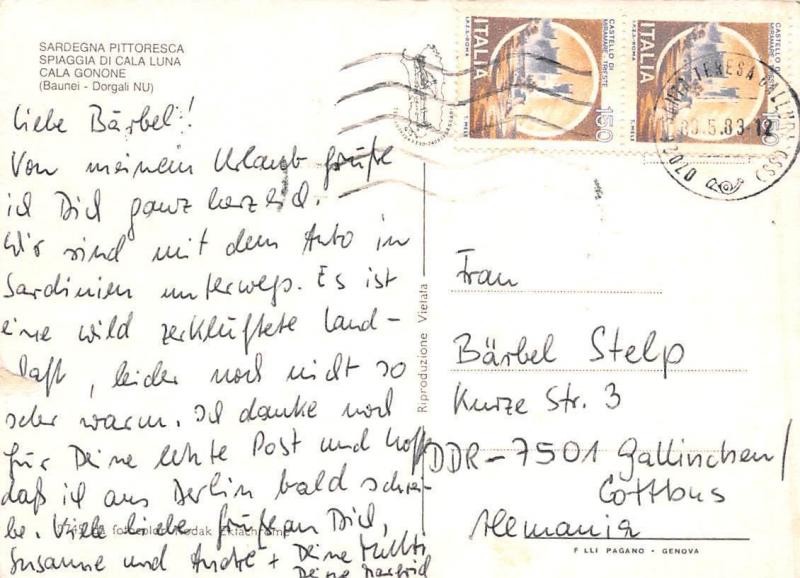 SARDEGNA PITTORESCA
SPIAGGIA DI CALA LUNA
CALA GONONE
(Baunei - Dorgali NU)
Liebe Bärbel!
Von meinem Urlaub grüße
ich Dich ganz herzlich.
Wir sind mit dem Auto in
Sardinien unterwegs. Es ist
eine wild zerklüftete Land-
schaft, leider noch nicht so
sehr warm. Ich danke noch
für Deine letzte Post und hoffe
daß ich aus Berlin bald schrei-
be. Viele liebe Grüße an Dich,
Susanne und André +
fotocolor Kodak Ektachrome
Riproduzione Vietata
ITALIA
CASTELLO DI
MIRAMARE - TRIESTE
I.P.Z.S. - ROMA
150
ITALIA
CASTELLO DI
MIRAMARE - TRIESTE
I.P.Z.S. - ROMA
150
TERESA GALLURA (SS)
07020
.5.83-12
Frau
Bärbel Stelp
Kurze Str. 3
DDR-7501 Gallinchen/
Cottbus
Alemania
F LLI PAGANO - GENOVA